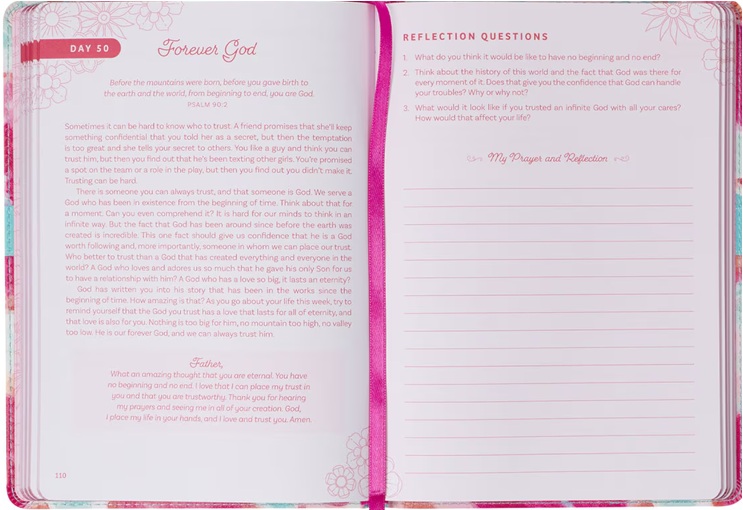 DAY 50
Forever God
Before the mountains were born, before you gave birth to
the earth and the world, from beginning to end, you are God.
PSALM 90:2
Sometimes it can be hard to know who to trust. A friend promises that she'll keep
something confidential that you told her as a secret, but then the temptation
is too great and she tells your secret to others. You like a guy and think you can
trust him, but then you find out that he's been texting other girls. You're promised
a spot on the team or a role in the play, but then you find out you didn't make it.
Trusting can be hard.
There is someone you can always trust, and that someone is God. We serve a
God who has been in existence from the beginning of time. Think about that for
a moment. Can you even comprehend it? It is hard for our minds to think in an
infinite way. But the fact that God has been around since before the earth was
created is incredible. This one fact should give us confidence that he is a God
worth following and, more importantly, someone in whom we can place our trust.
Who better to trust than a God that has created everything and everyone in the
world? A God who loves and adores us so much that he gave his only Son for us
to have a relationship with him? A God who has a love so big, it lasts an eternity?
God has written you into his story that has been in the works since the
beginning of time. How amazing is that? As you go about your life this week, try to
remind yourself that the God you trust has a love that lasts for all of eternity, and
that love is also for you. Nothing is too big for him, no mountain too high, no valley
too low. He is our forever God, and we can always trust him.
Father,
What an amazing thought that you are eternal. You have
no beginning and no end. I love that I can place my trust in
you and that you are trustworthy. Thank you for hearing
my prayers and seeing me in all of your creation. God,
I place my life in your hands, and I love and trust you. Amen.
110
REFLECTION QUESTIONS
1. What do you think it would be like to have no beginning and no end?
2. Think about the history of this world and the fact that God was there for
every moment of it. Does that give you the confidence that God can handle
your troubles? Why or why not?
3. What would it look like if you trusted an infinite God with all your cares?
How would that affect your life?
My Prayer and Reflection